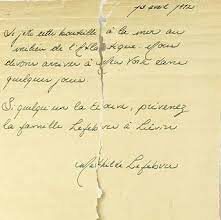 13 avril 1912
Je jette cette bouteille à la mer au
milieu de l'Atlantique. Nous
devons arriver à New York dans
quelques jours.
Si quelqu'un la trouve, prévenez
la famille Lefebvre à Liévin
Mathilde Lefebvre